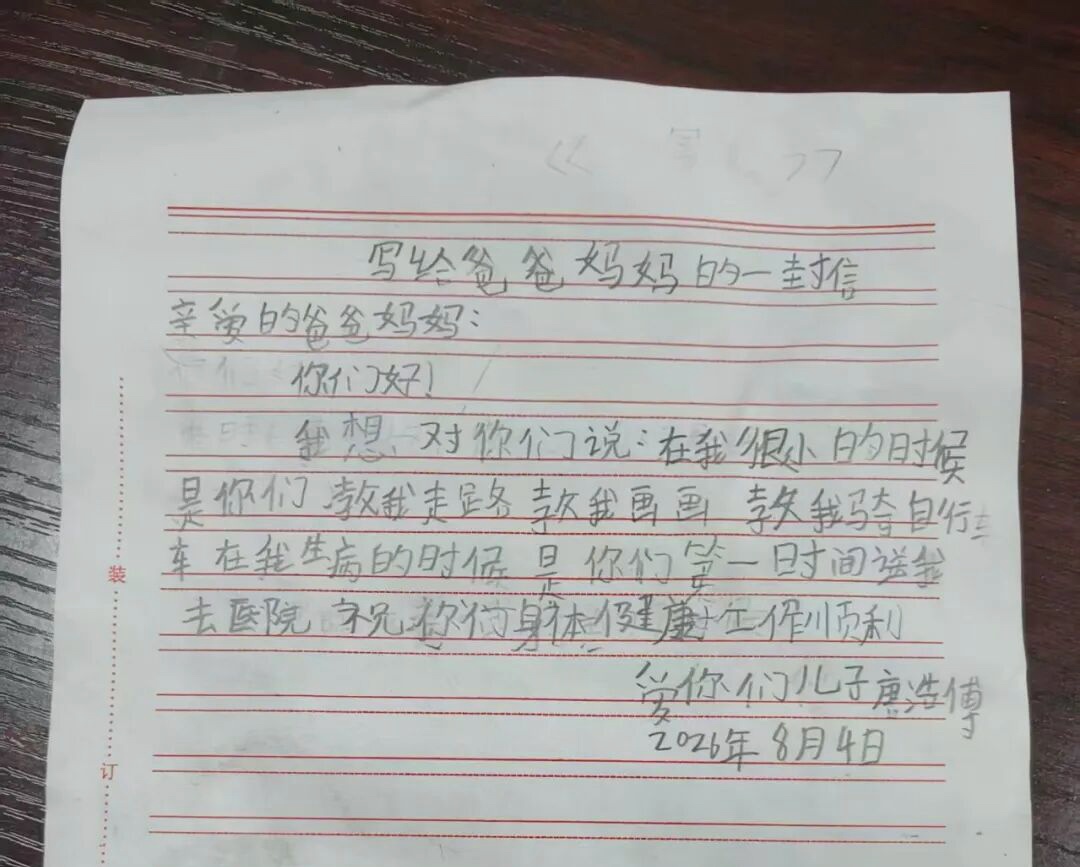 《 写 》
写给爸爸妈妈的一封信
亲爱的爸爸妈妈：
你们好！
我想对你们说：在我很小的时候
是你们教我走路教我画画教我骑自行
车在我生病的时候是你们第一时间送我
去医院祝您们身体健康工作顺利
爱你们儿子唐浩傅
2026年8月4日
装
订